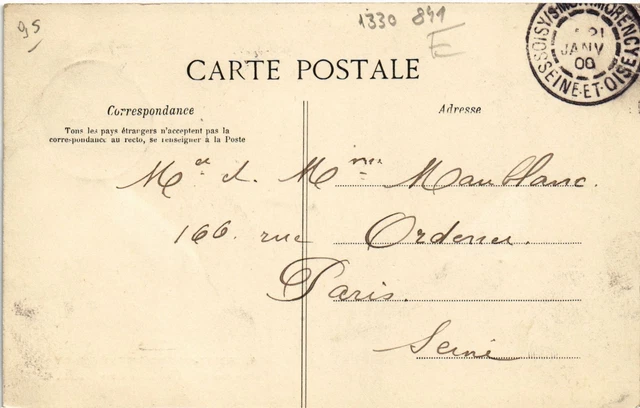 95
1330 841
E
SOISY/S-MONTMORENCY
21
JANV
08
SEINE-ET-OISE
CARTE POSTALE
Correspondance
Adresse
Tous les pays étrangers n'acceptent pas la
correspondance au recto, se renseigner à la Poste
Mr et Mme Maublanc.
166. rue Ordener.
Paris.
Seine